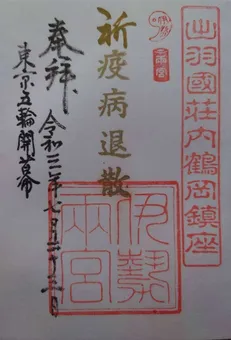 出羽國荘内鶴岡鎮座
祈疫病退散
伊勢
両宮
奉拝
令和三年七月二十三日
東京五輪開幕